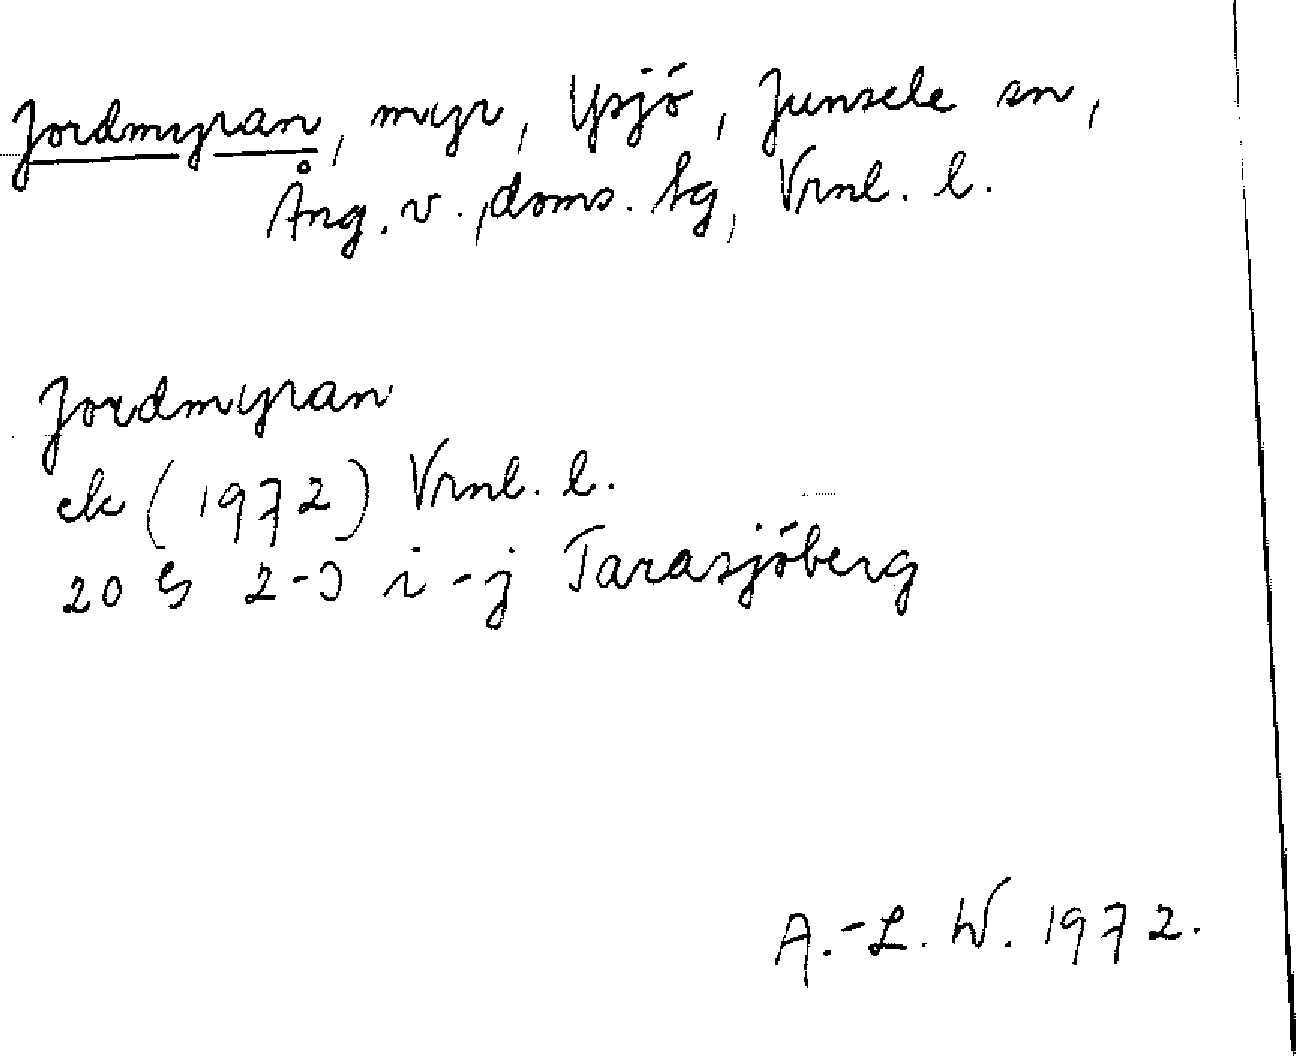 Jordmyran, myr, Ysjö, Junsele sn,
Ång. v., doms. tg, Vrnl. l.
Jordmyran
ek (1972) Vrnl. l.
20 G 2-3 i-j Tarasjöberg
A.-L. W. 1972.